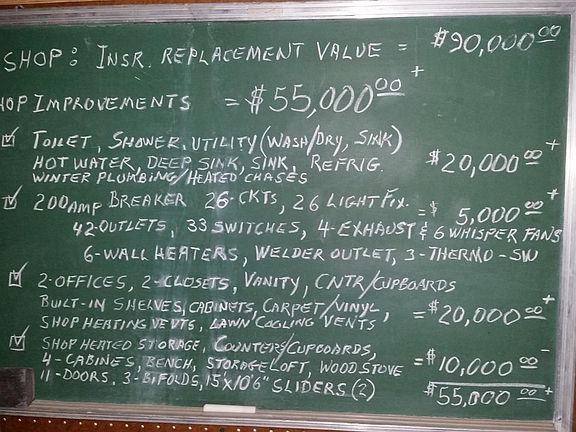 SHOP: INSR. REPLACEMENT VALUE = $90,000.00
HOP IMPROVEMENTS = $55,000.00+
☑ TOILET, SHOWER, UTILITY (WASH/DRY, SINK)
HOT WATER, DEEP SINK, SINK, REFRIG. $20,000.00+
WINTER PLUMBING/HEATED CHASES
☑ 200 AMP BREAKER 26-CKTS, 26 LIGHT FIX. = $5,000.00+
42-OUTLETS, 33 SWITCHES, 4-EXHAUST & 6 WHISPER FANS
6-WALL HEATERS, WELDER OUTLET, 3-THERMO-SW
☑ 2-OFFICES, 2-CLOSETS, VANITY, CNTR/CUPBOARDS
BUILT-IN SHELVES, CABINETS, CARPET/VINYL, = $20,000.00+
SHOP HEATING VENTS, LAWN COOLING VENTS
☑ SHOP HEATED STORAGE, COUNTERS/CUPBOARDS,
4-CABINES, BENCH, STORAGE LOFT, WOOD STOVE = $10,000.00-
11-DOORS, 3-BIFOLDS, 15'x10'6" SLIDERS (2) $55,000.00+